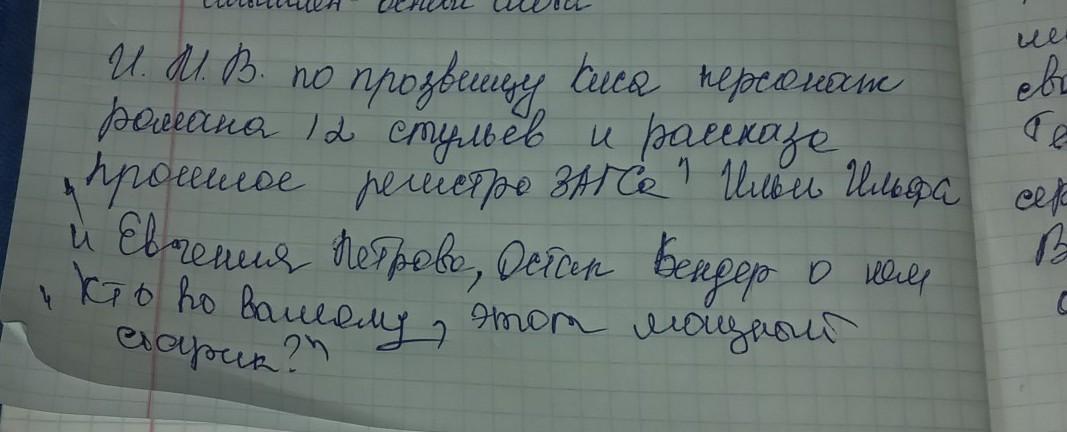 И. М. В. по прозвищу Киса персонаж
романа 12 стульев и рассказа
"прошлое регистра ЗАГСа" Ильи Ильфа
и Евгения Петрова, Остап Бендер о нем
"Кто по вашему, этот мощный
старик?"